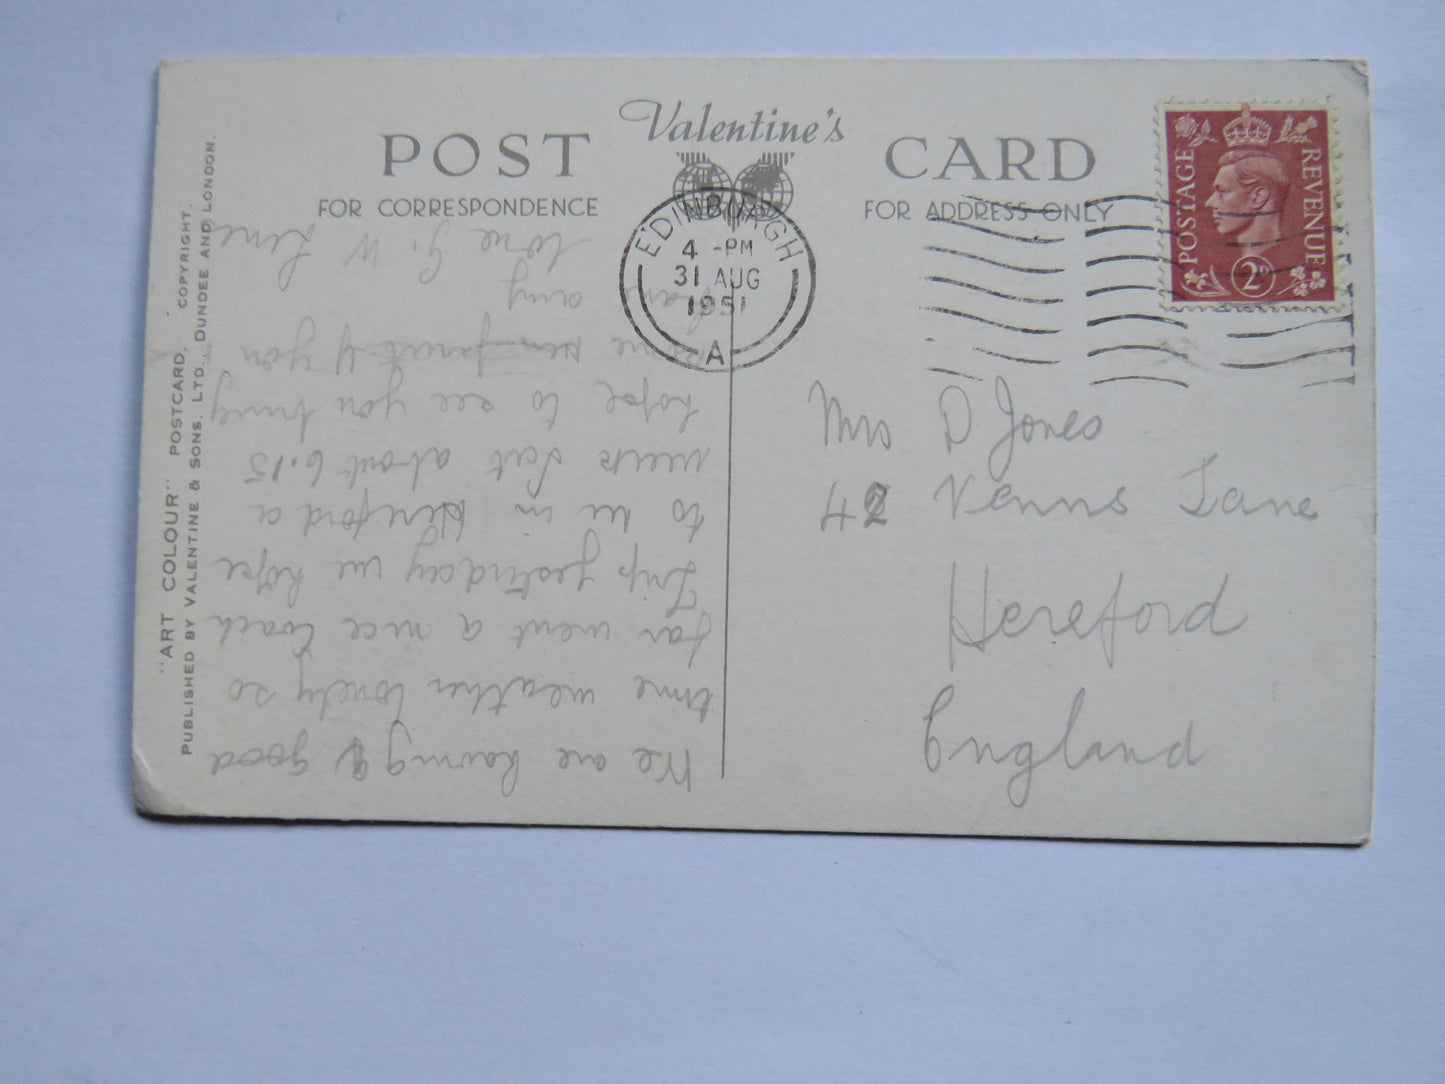 Valentine's
POST CARD
FOR CORRESPONDENCE
FOR ADDRESS ONLY
EDINBURGH
4 -PM
31 AUG
1951
A
POSTAGE REVENUE
2D
Mrs D Jones
42 Venns Lane
Hereford
England
We are having a good
time weather lovely so
far went a nice Coach
Trip yesterday we hope
to be in Hereford a
week Sat about 6.15
hope to see you
some if you
any
love G. W
"ART COLOUR" POSTCARD. COPYRIGHT.
PUBLISHED BY VALENTINE & SONS, LTD., DUNDEE AND LONDON.